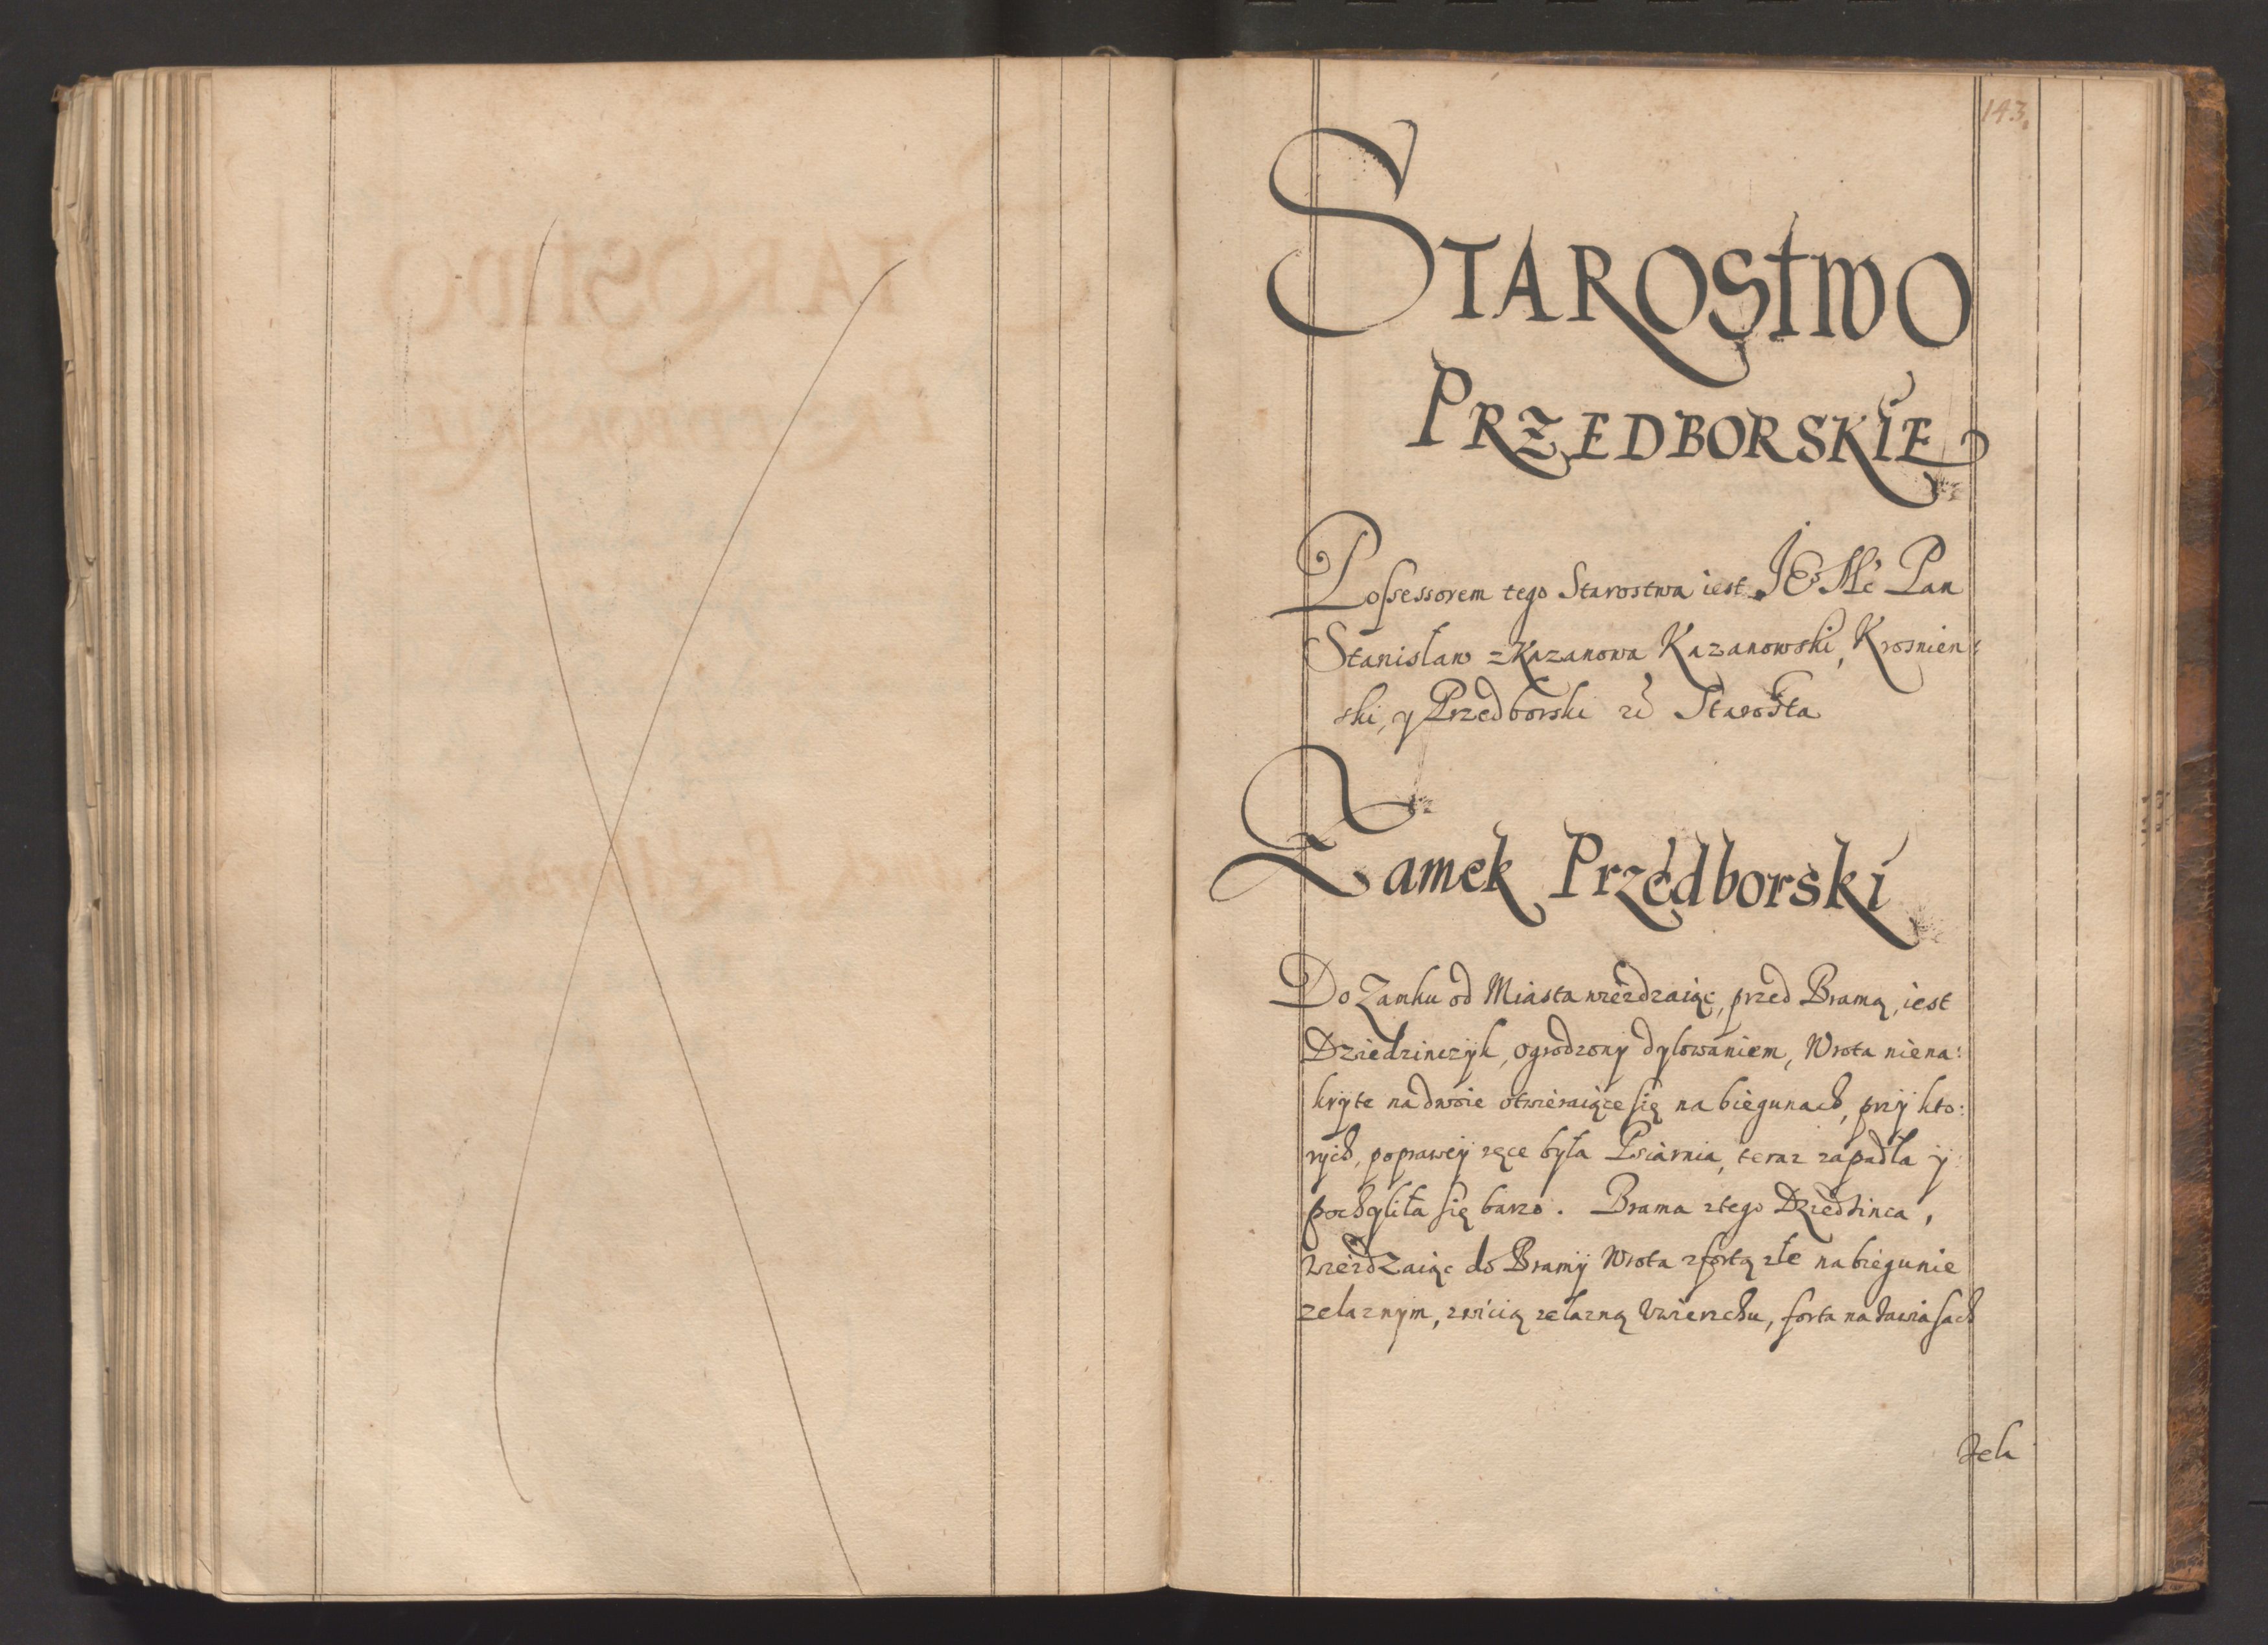 143.
STAROSTWO
PRZEDBORSKIE
Possessorem tego Starostwa iest JE Mć Pan
Stanisław z Kazanowa Kazanowski, Krosnien:
ski, y Przedborski Starosta
Zamek Przedborski
Do Zamku od Miasta wieżdzaiąc, przed Bramą, iest
Dziedzinczyk, ogrodzony dylowaniem, Wrota niena:
kryte na dwoie otwieraiące się na biegunach, przy kto:
rych, poprawey ręce była Psiarnia, teraz zapadła y
pochyliła się barzo. Brama z tego Dziedzinca,
wieżdzaiąc do Bramy Wrota z fortą złe na biegunie
zelaznym, z wicią zelazną v wierzchu, forta na zawiasach
zela